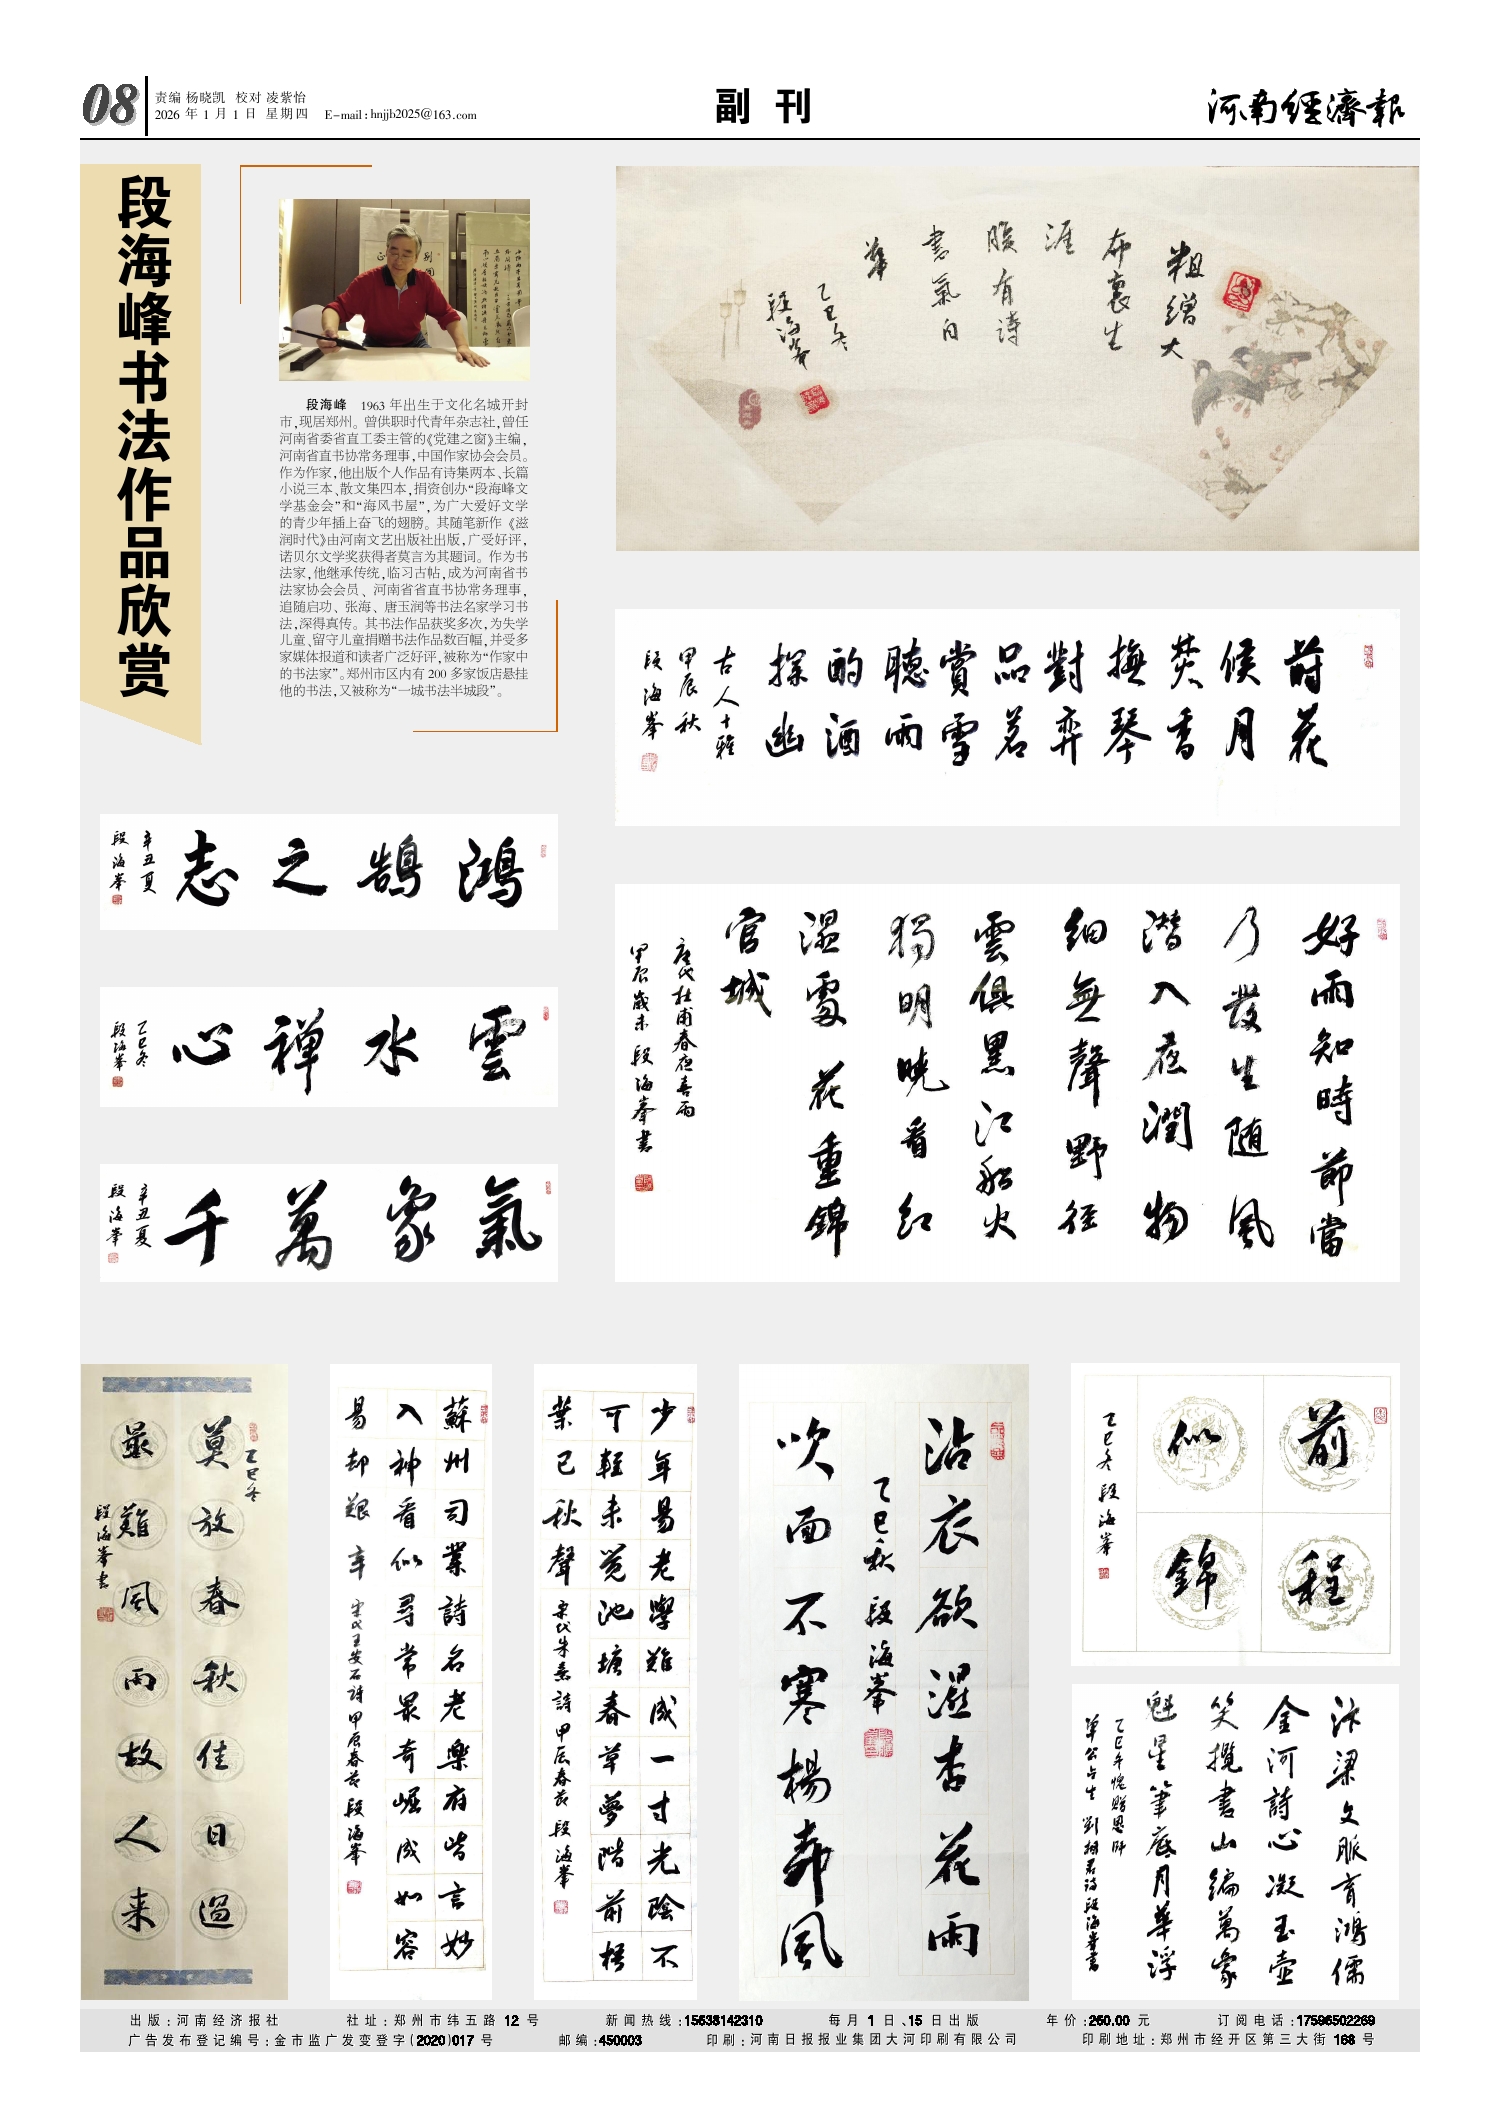 08
责编 杨晓凯 校对 凌紫怡
2026 年 1 月 1 日 星期四 E-mail:hnjjb2025@163.com
副刊
河南經濟報
段海峰书法作品欣赏
段海峰 1963 年出生于文化名城开封
市,现居郑州。曾供职时代青年杂志社,曾任
河南省委省直工委主管的《党建之窗》主编,
河南省直书协常务理事,中国作家协会会员。
作为作家,他出版个人作品有诗集两本、长篇
小说三本、散文集四本,捐资创办“段海峰文
学基金会”和“海风书屋”,为广大爱好文学
的青少年插上奋飞的翅膀。其随笔新作《滋
润时代》由河南文艺出版社出版,广受好评,
诺贝尔文学奖获得者莫言为其题词。作为书
法家,他继承传统,临习古帖,成为河南省书
法家协会会员、河南省省直书协常务理事,
追随启功、张海、唐玉润等书法名家学习书
法,深得真传。其书法作品获奖多次,为失学
儿童、留守儿童捐赠书法作品数百幅,并受多
家媒体报道和读者广泛好评,被称为“作家中
的书法家”。郑州市区内有 200 多家饭店悬挂
他的书法,又被称为“一城书法半城段”。
粗繒大
布裹生
涯
腹有詩
書氣自
華
乙巳冬
段海峯
蒔花
候月
焚香
撫琴
對弈
品茗
賞雪
聽雨
酌酒
探幽
古人十雅
甲辰秋
段海峯
鴻鵠之志
辛丑夏
段海峯
雲水禪心
乙巳冬
段海峯
氣象萬千
辛丑夏
段海峯
好雨知時節當
乃發生随風
潜入夜潤物
細無聲野径
雲俱黑江船火
獨明曉看红
濕處花重錦
官城
唐代杜甫春夜喜雨
甲辰歲末段海峯書
乙巳冬
莫放春秋佳日過
最難風雨故人来
段海峯書
蘇州司業詩名老樂府皆言妙
入神看似尋常最奇崛成如容
易却艱辛
宋代王安石詩甲辰春节段海峯
少年易老學難成一寸光陰不
可輕未觉池塘春草夢階前梧
葉已秋聲
宋代朱熹詩甲辰春节段海峯
沾衣欲濕杏花雨
乙巳秋段海峯
吹面不寒楊柳風
前程
似錦
乙巳冬段海峯
汴梁文脈育鴻儒
金河詩心凝玉壺
笑攬書山編萬象
魁星筆底月華浮
出版:河南经济报社 社址:郑州市纬五路 12 号 新闻热线:15638142310 每月 1 日、15 日出版 年价:260.00 元 订阅电话:17596502269
广告发布登记编号:金市监广发变登字(2020)017 号 邮编:450003 印刷:河南日报报业集团大河印刷有限公司 印刷地址:郑州市经开区第三大街 168 号